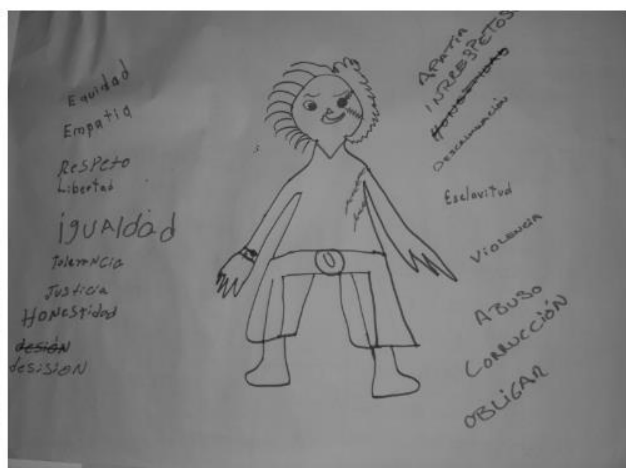 Equidad
Empatia
Respeto
Libertad
igualdad
Tolerancia
Justicia
Honestidad
desión
desision
Apatia
Irrespetos
Honestidad
Descriminación
Esclavitud
Violencia
Abuso
Corrucción
Obligar